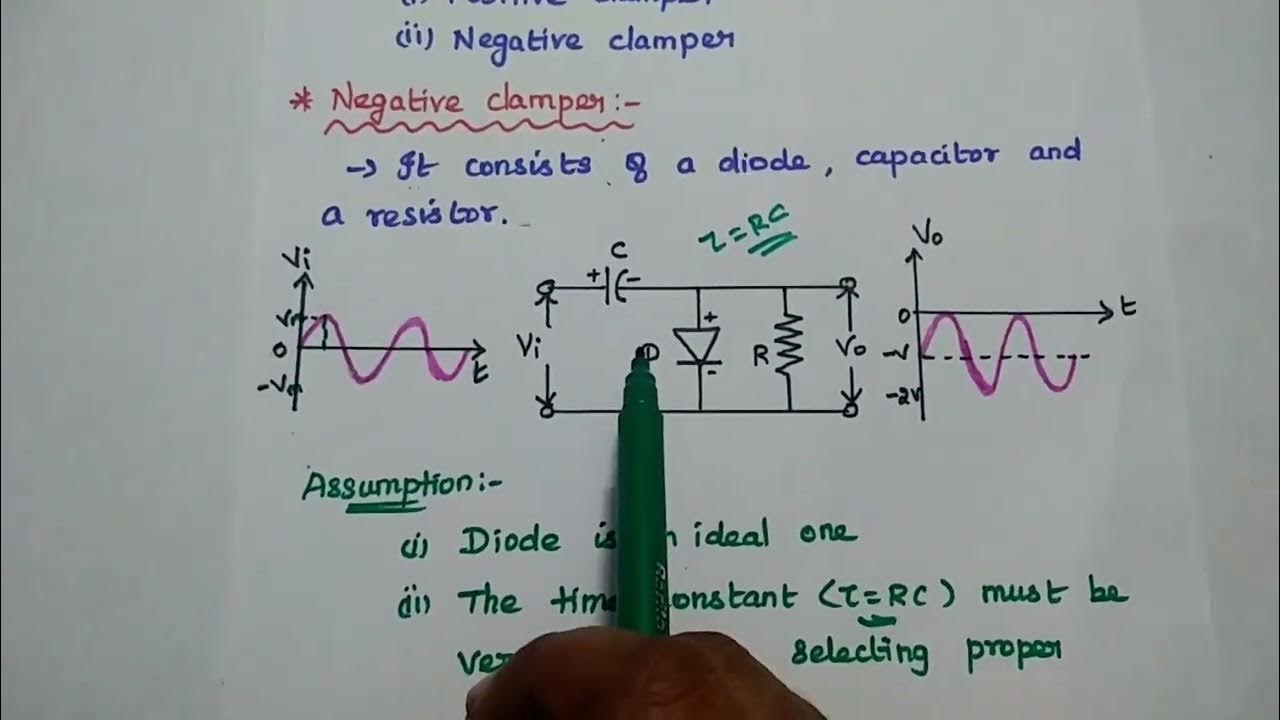 (i) Positive clamper
(ii) Negative clamper
* Negative clamper:-
→ It consists of a diode, capacitor and
a resistor.
τ = RC
Vi
V
0
-V
t
C
+ -
Vi
D
+
-
R
Vo
Vo
0
-V
-2V
t
Assumption:-
(i) Diode is ideal one
(ii) The constant (τ=RC) must be
selecting proper